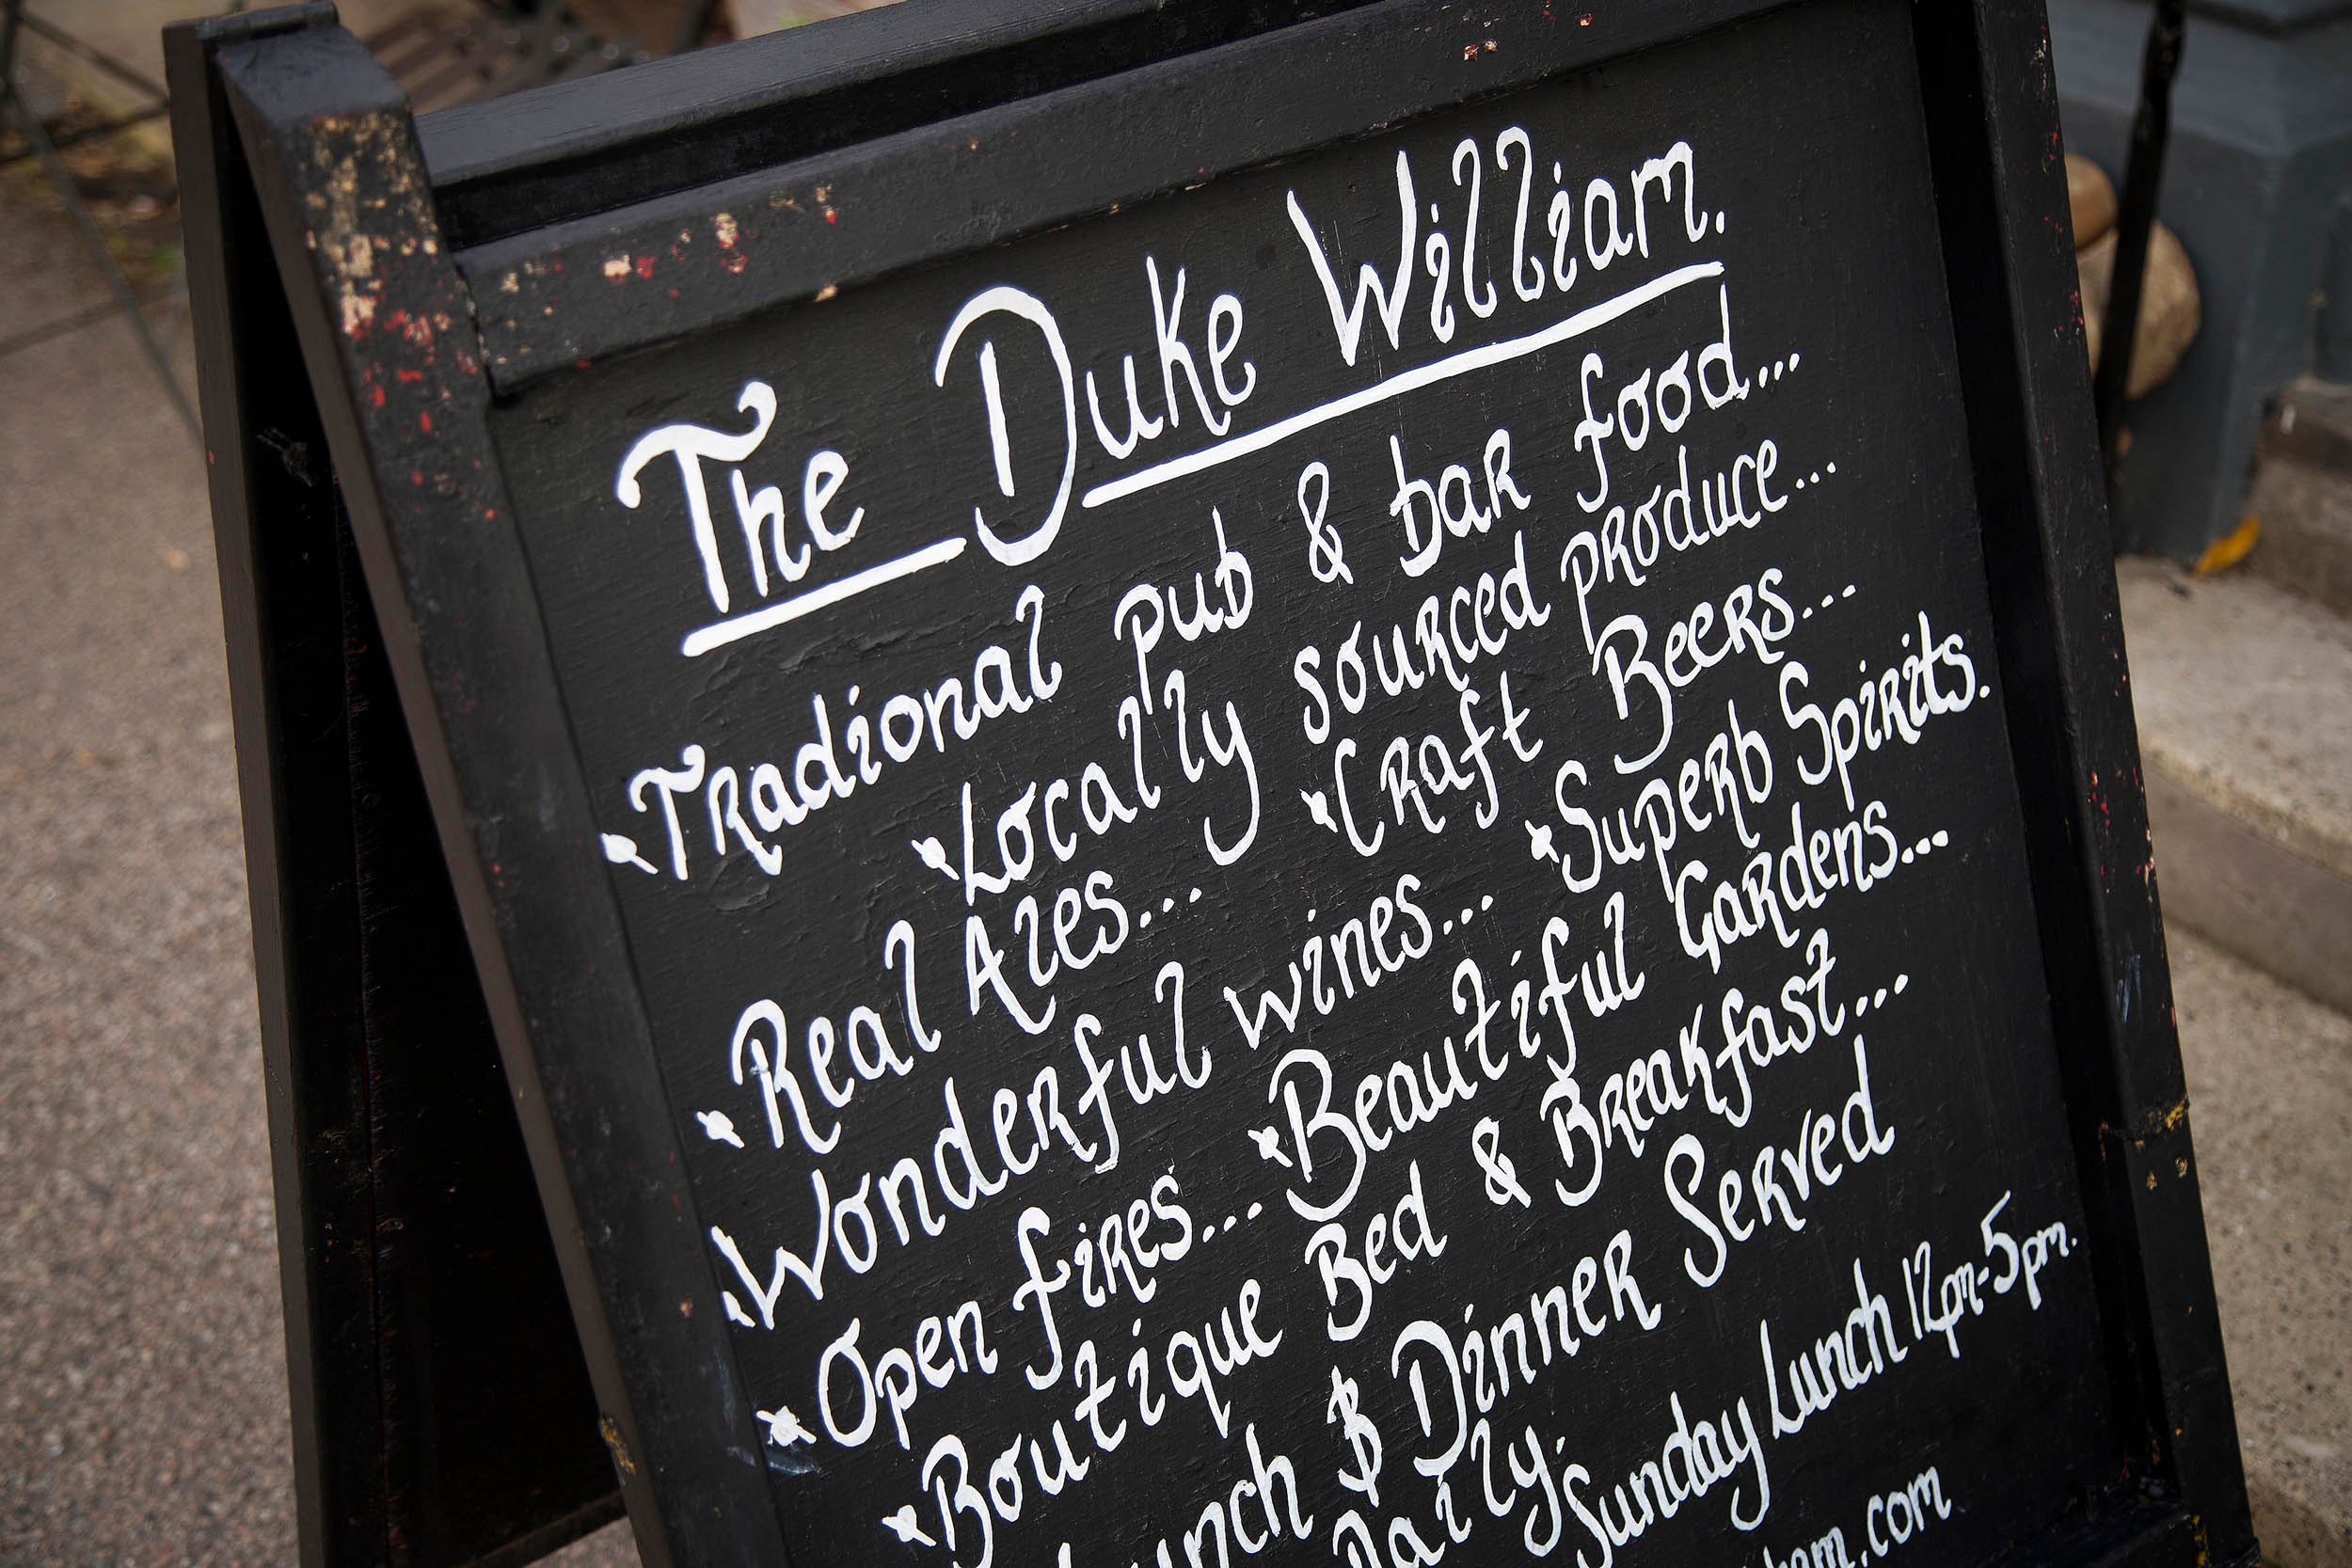 The Duke William.
Tradional pub & bar food...
Locally sourced produce...
Real Ales... Craft Beers...
Wonderful wines... Superb Spirits.
Open fires... Beautiful Gardens...
Boutique Bed & Breakfast...
& Dinner Served
Daily. Sunday Lunch 12pm-5pm.